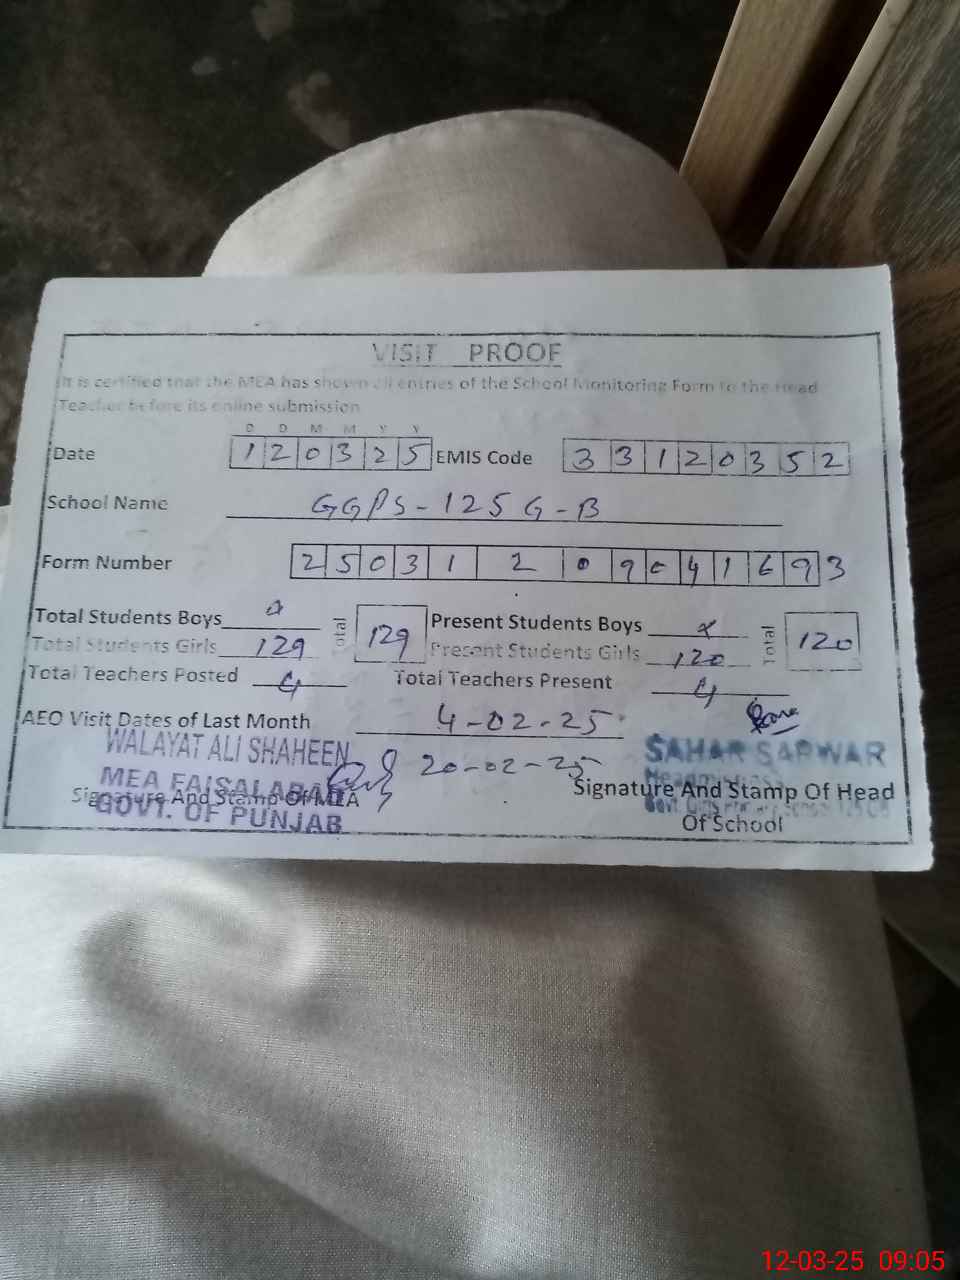 VISIT PROOF
It is certified that the MEA has shown all entries of the School Monitoring Form to the Head
Teacher before its online submission
D D M M Y Y
Date 120325 EMIS Code 33120352
School Name GGPS-125 G-B
Form Number 25031209041693
Total Students Boys Total 129 Present Students Boys x Total 120
Total Students Girls 129 Present Students Girls 120
Total Teachers Posted 4 Total Teachers Present 4
AEO Visit Dates of Last Month 4-02-25
20-02-25
WALAYAT ALI SHAHEEN
MEA FAISALABAD
GOVT. OF PUNJAB
Signature And Stamp Of MEA
SAHAR SARWAR
Headmistress
Govt. Girls Primary School 125 GB
Signature And Stamp Of Head
Of School
12-03-25 09:05